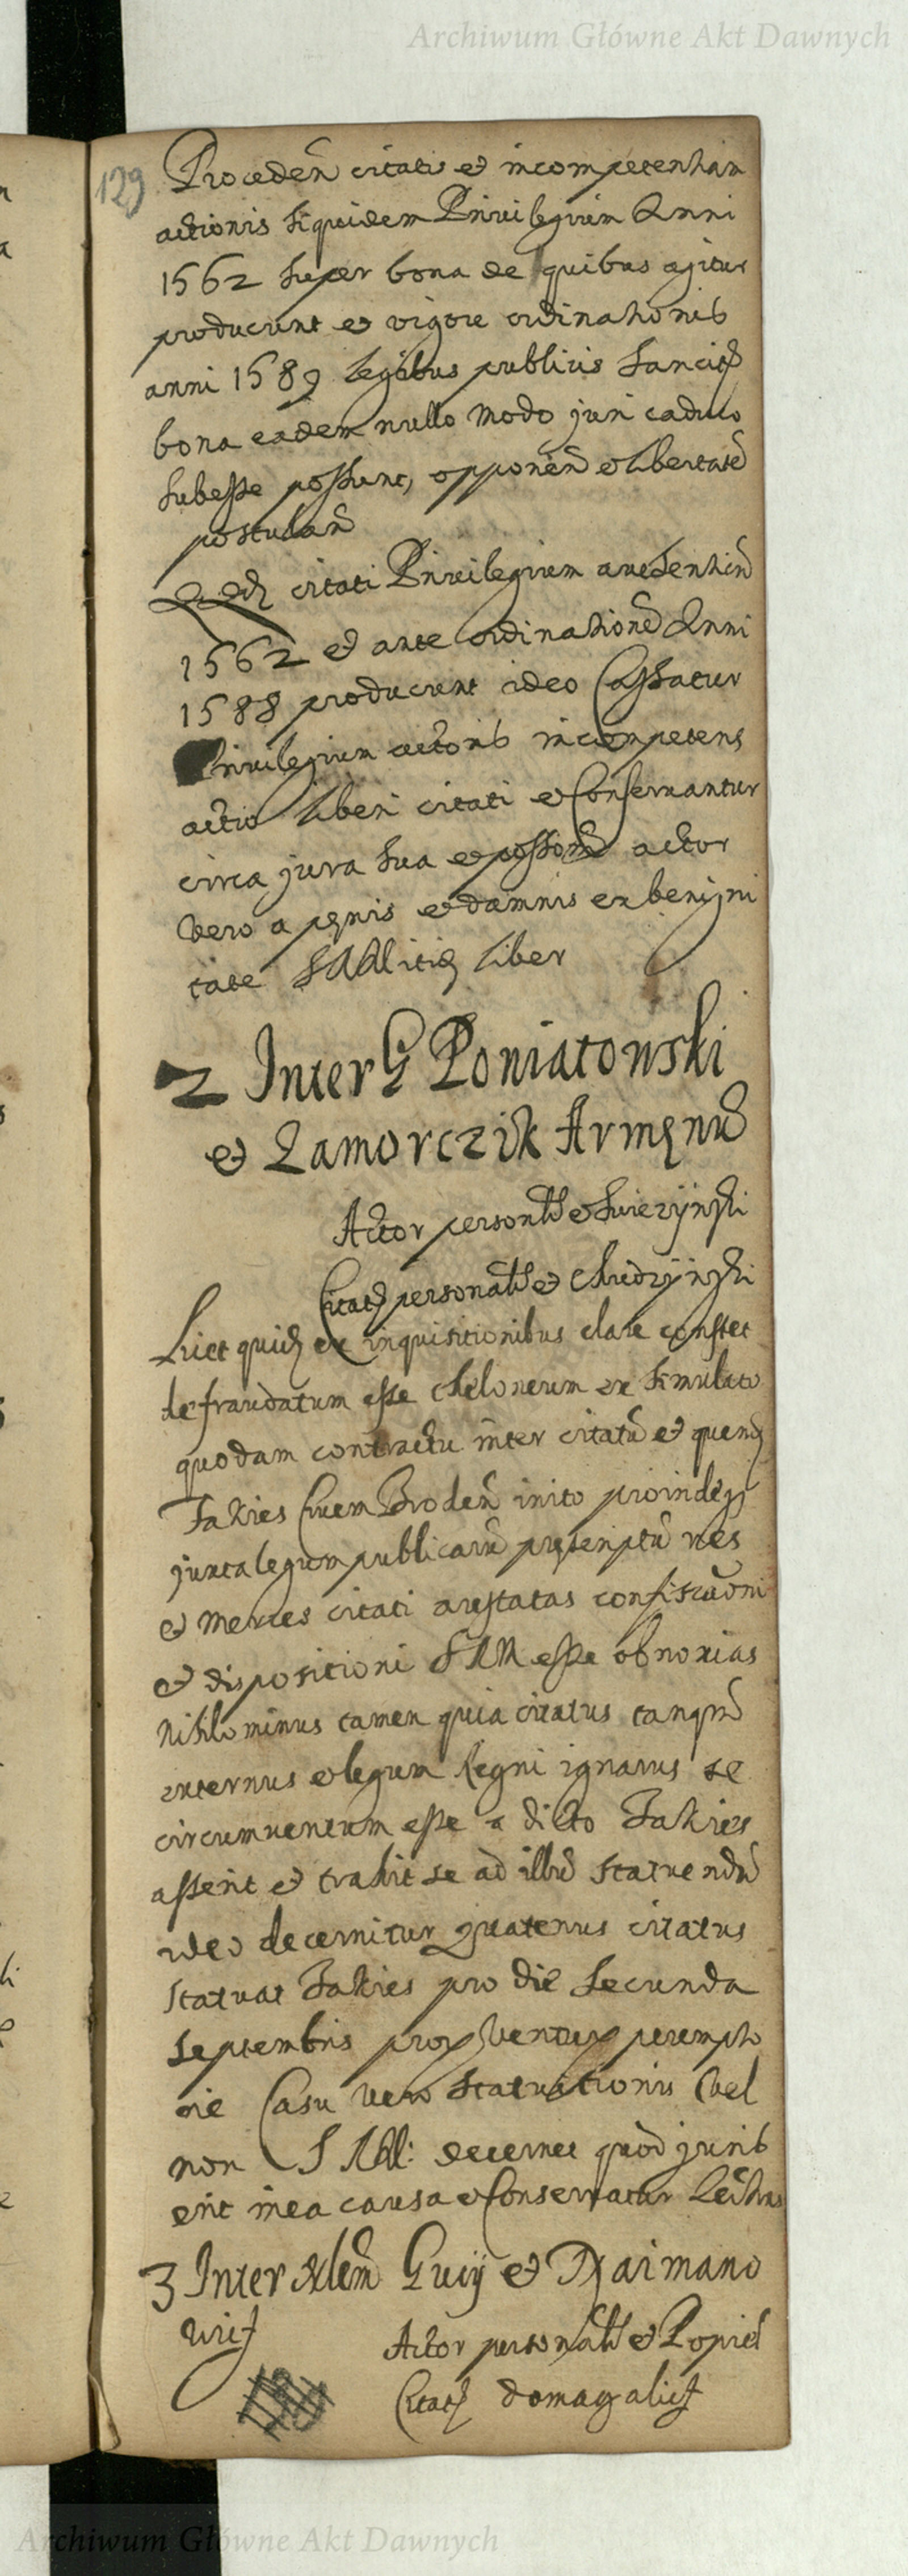 Archiwum Główne Akt Dawnych
129
Proceden citatis et incompetentiam
actionis siquidem Privilegium Anni
1562 super bona de quibus agitur
producunt et vigore ordinationis
anni 1589 legibus publicis sancitus
bona eadem nullo modo juri caduco
subesse possunt, opponen et libertatem
postulan
citati Privilegium autentic
1562 et ante ordinationem Anni
1588 producunt ideo Cassatur
Privilegium actoris incompetens
actio liberi citati et Conservantur
circa jura sua et posson actor
vero a penis et damnis ex benigni
tate liber
2 Inter G Poniatowski
et Zamorczik Armenu
Actor personal et Swiezynski
Citat personal et Chudzynski
Licet quid ex inquisitionibus clare constet
defraudatum esse theloneum ex simulato
quodam contractu inter citatu et quend
Fakies Civem Broden inito proindeq
juxta legum publicaru prescriptu res
et merces citati arestatas confiscaoni
et dispositioni S R M esse obnoxias
Nihilominus tamen quia citatus tanqm
externus et legum Regni ignarus se
circumventum esse a dicto Fakies
asserit et trahit se ad illu statuendu
ideo decernitur quatenus citatus
statuat Fakies pro die secunda
septembris prox ventur perempto
rie Casu vero statuitionis vel
non S R M: decernet quod juris
erit in ea causa et Conservatur
3 Inter Guij et Naimano
wic
Actor personal et Popiel
Citat Domagalic
Archiwum Główne Akt Dawnych